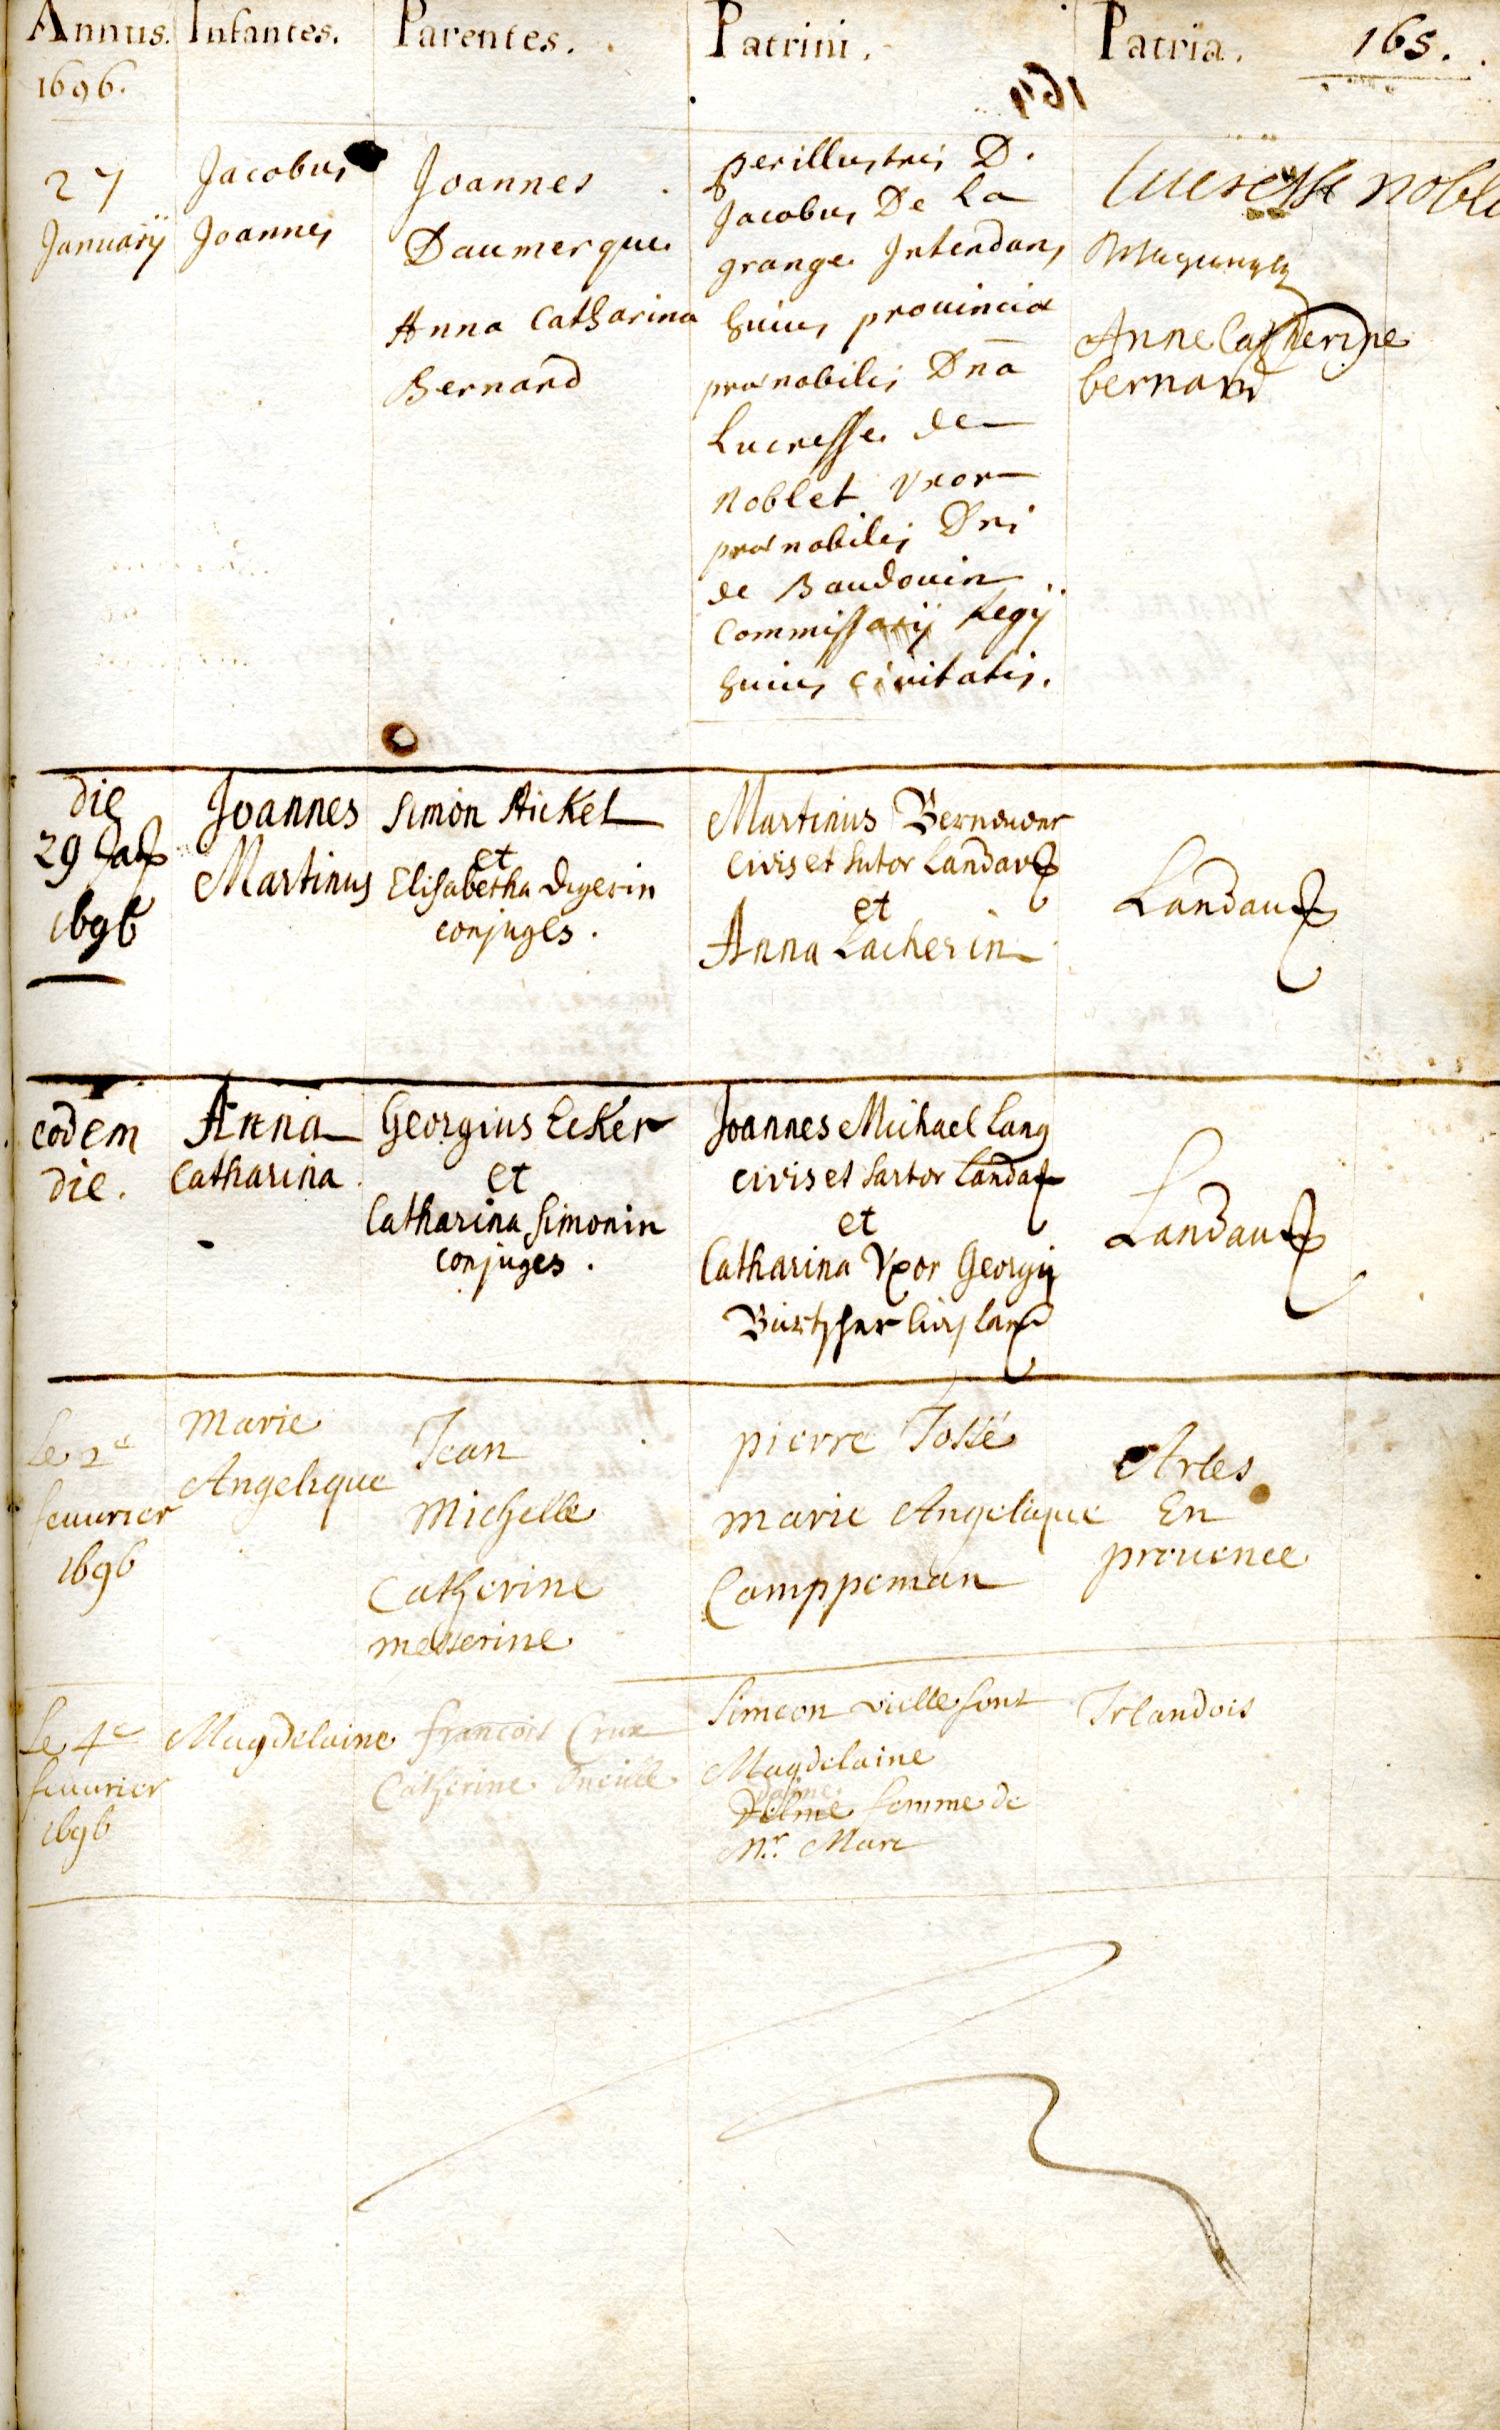 Annus. Infantes. Parentes. Patrini. Patria. 165.
1696.
164
27
Januarÿ
Jacobus
Joannes
Joannes
Daumerque
Anna Catharina
Bernard
perillustris D.
Jacobus De La
grange Intendans
huius provinciæ
prænobilis Dna
Lucresse de
Noblet Uxor
prænobilis Dni
de Baudouin
Commissarÿ Regÿ
huius civitatis.
lucresse noble
Anne Catherine
bernard
die
29 Jan
1696
Joannes
Martinus
Simon Hickel
et
Elisabetha Degerin
conjuges.
Martinus
civis et sutor Landav
et
Anna Lacherin
Landau
eodem
die.
Anna
Catharina.
Georgius Ecker
et
Catharina Simonin
conjuges.
Joannes Michael Lang
civis et sartor Landa
et
Catharina Uxor Georgij
Landau
Le 2e
feuurier
1696
Marie
Angelique
Jean
Michelle
Catherine
messerine
pierre Jossé
marie Angelique
Camppeman
Arles
En
prouence
Le 4e
feuurier
1696
Magdelaine
françois Crux
Catherine Oneille
Simeon viellefont
Magdelaine
femme de
Mr. Marc
Irlandois